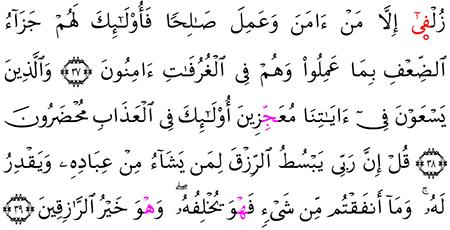 زُلْفِيٰٓ إِلَّا مَنْ ءَامَنَ وَعَمِلَ صَـٰلِحًا فَأُو۟لَـٰٓئِكَ لَهُمْ جَزَآءُ
ٱلضِّعْفِ بِمَا عَمِلُوا۟ وَهُمْ فِي ٱلْغُرُفَـٰتِ ءَامِنُونَ ٣٧ وَٱلَّذِينَ
يَسْعَوْنَ فِيٓ ءَايَـٰتِنَا مُعَجِّزِينَ أُو۟لَـٰٓئِكَ فِي ٱلْعَذَابِ مُحْضَرُونَ
٣٨ قُلْ إِنَّ رَبِّي يَبْسُطُ ٱلرِّزْقَ لِمَن يَشَآءُ مِنْ عِبَادِهِۦ وَيَقْدِرُ
لَهُۥۚ وَمَآ أَنفَقْتُم مِّن شَيْءٍ فَهْوَ يُخْلِفُهُۥۖ وَهْوَ خَيْرُ ٱلرَّٰزِقِينَ ٣٩